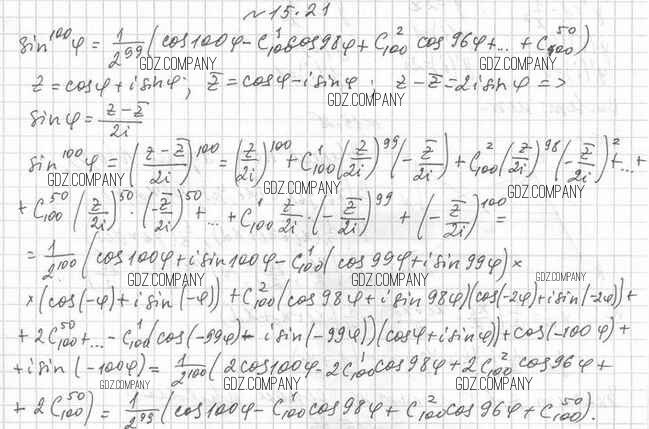 №15.21
sin¹⁰⁰φ = 1/2⁹⁹ (cos100φ - C¹₁₀₀cos98φ + C²₁₀₀ cos96φ + ... + C⁵⁰₁₀₀)
GDZ.COMPANY GDZ.COMPANY GDZ.COMPANY
z = cosφ + i sinφ; z̅ = cosφ - i sinφ; z - z̅ = 2i sinφ =>
GDZ.COMPANY
sinφ = (z - z̅)/2i
sin¹⁰⁰φ = ((z - z̅)/2i)¹⁰⁰ = (z/2i)¹⁰⁰ + C¹₁₀₀(z/2i)⁹⁹(-z̅/2i) + C²₁₀₀(z/2i)⁹⁸(-z̅/2i)²+...+
GDZ.COMPANY GDZ.COMPANY GDZ.COMPANY
+ C⁵⁰₁₀₀(z/2i)⁵⁰·(-z̅/2i)⁵⁰+...+ C¹₁₀₀ z/2i·(-z̅/2i)⁹⁹ + (-z̅/2i)¹⁰⁰ =
= 1/2¹⁰⁰ (cos100φ + i sin100φ - C¹₁₀₀(cos99φ + i sin99φ) ×
GDZ.COMPANY GDZ.COMPANY GDZ.COMPANY
× (cos(-φ) + i sin(-φ)) + C²₁₀₀(cos98φ + i sin98φ)(cos(-2φ) + i sin(-2φ)) +
+ 2C⁵⁰₁₀₀ + ... - C¹₁₀₀(cos(-99φ) + i sin(-99φ))(cosφ + i sinφ)) + cos(-100φ) +
GDZ.COMPANY GDZ.COMPANY GDZ.COMPANY
+ i sin(-100φ) = 1/2¹⁰⁰ (2cos100φ - 2C¹₁₀₀cos98φ + 2C²₁₀₀cos96φ +
GDZ.COMPANY GDZ.COMPANY GDZ.COMPANY
+ 2C⁵⁰₁₀₀) = 1/2⁹⁹ (cos100φ - C¹₁₀₀cos98φ + C²₁₀₀cos96φ + C⁵⁰₁₀₀).